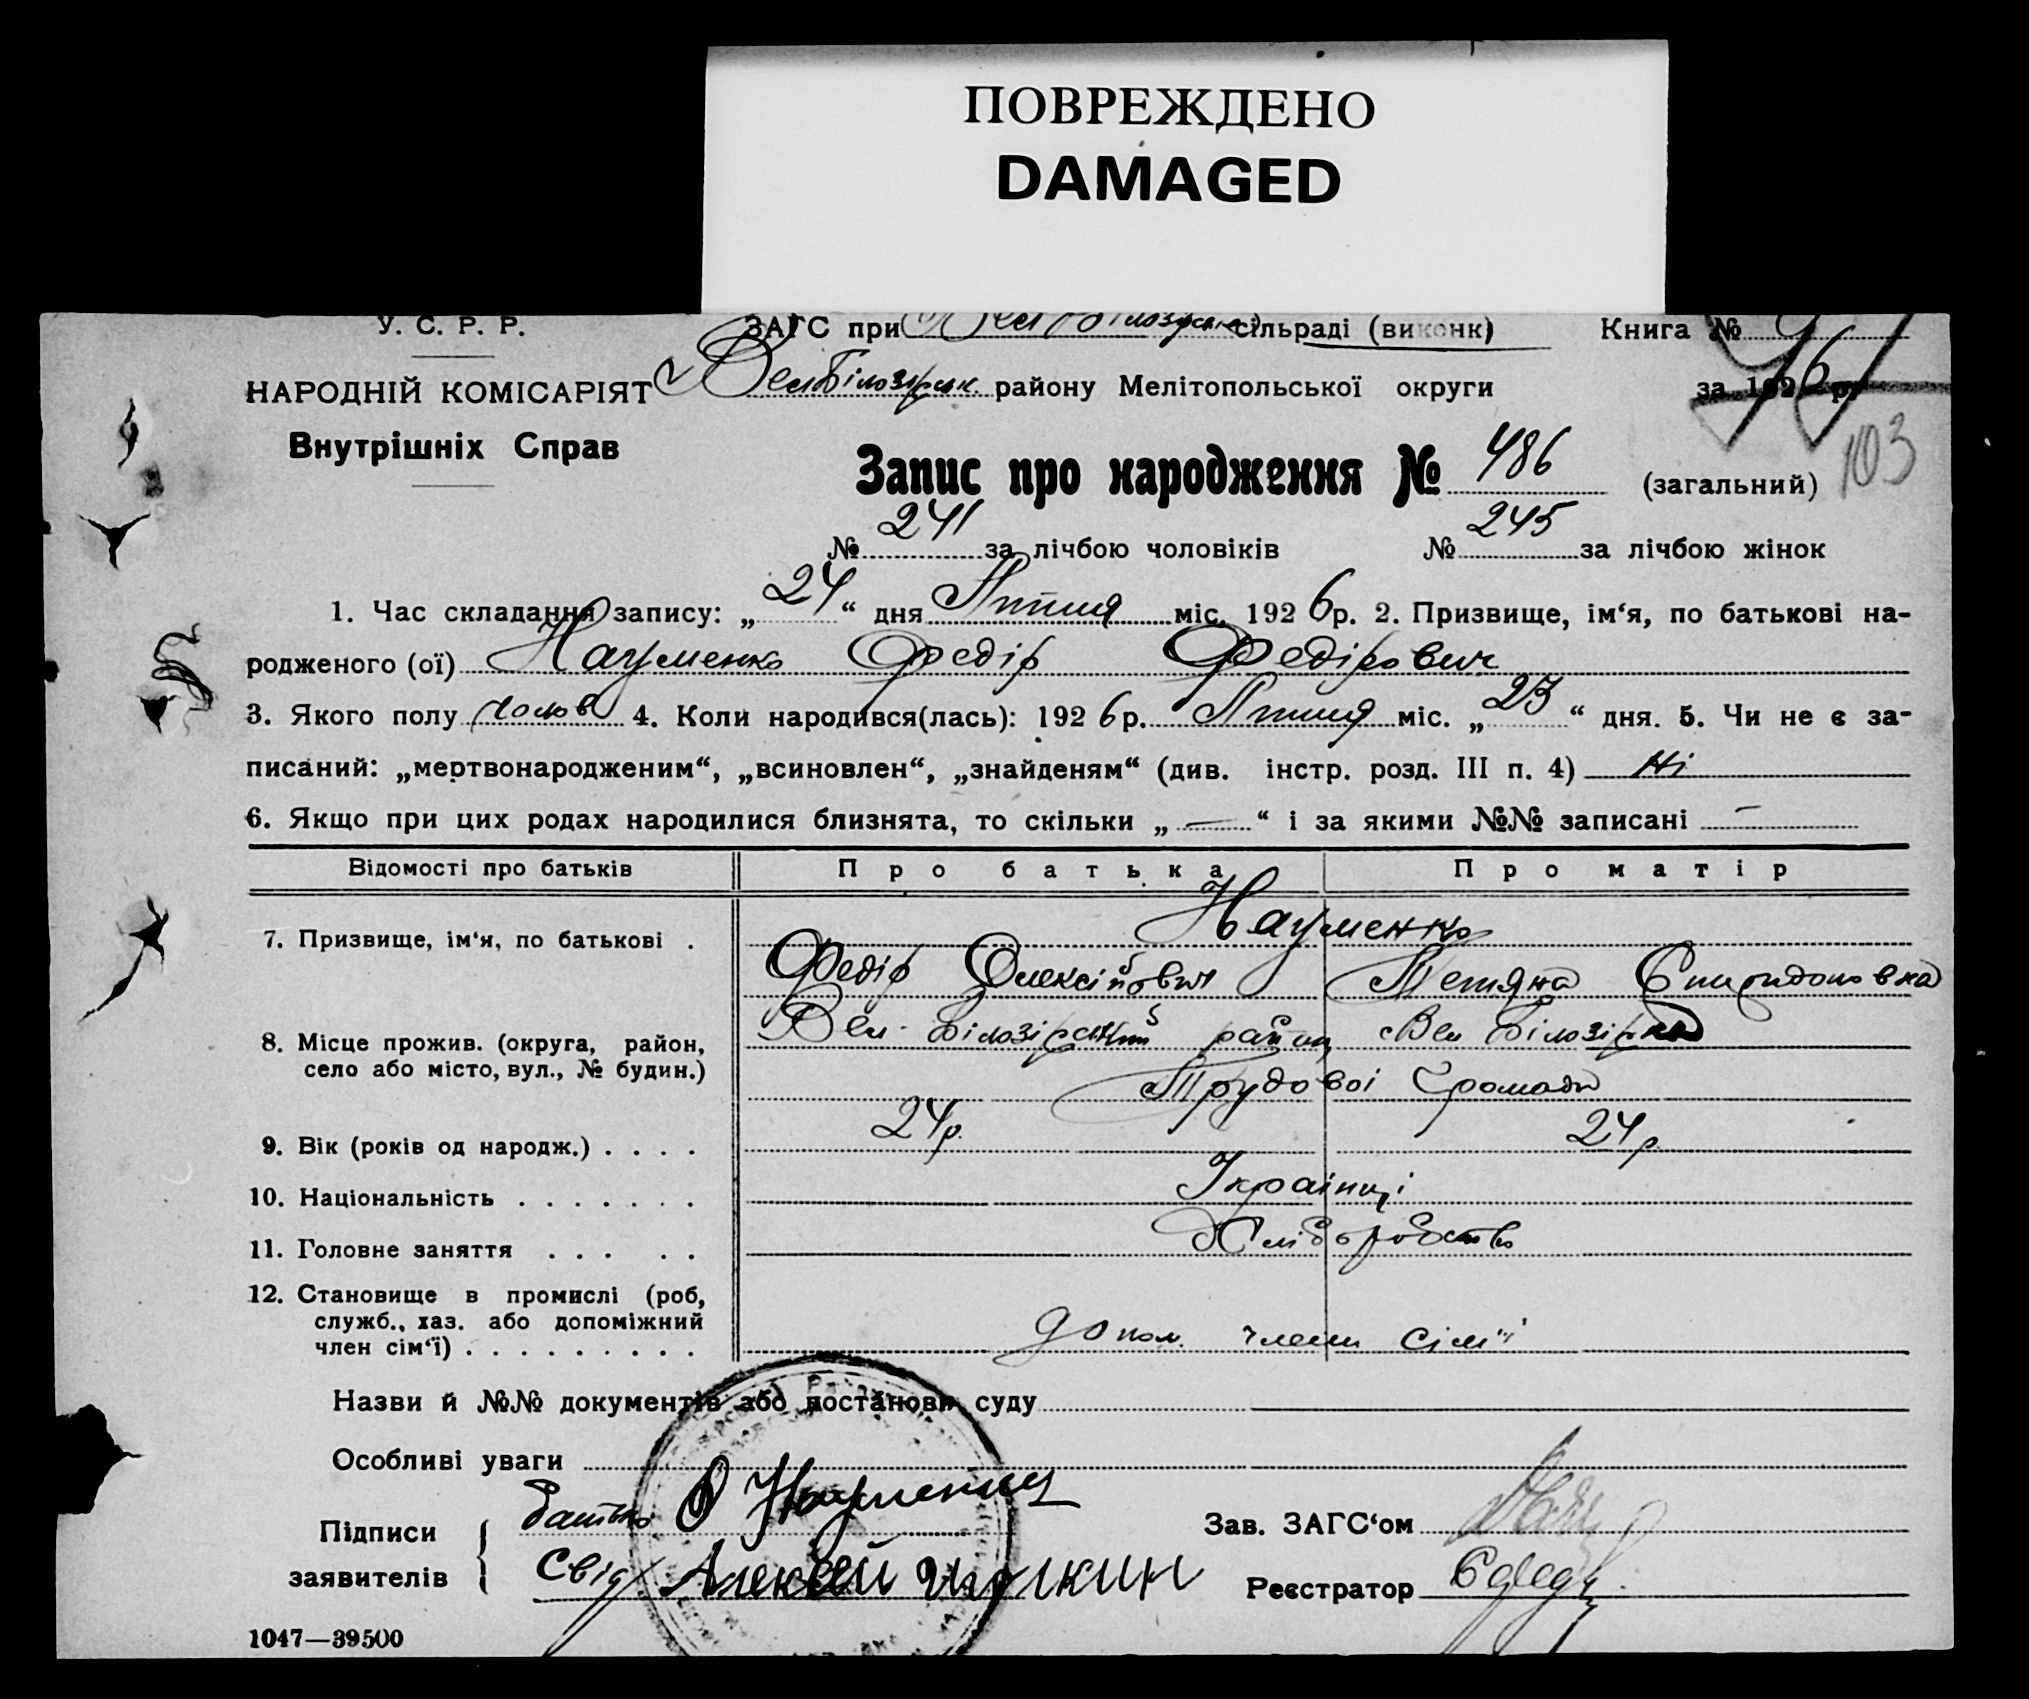 ПОВРЕЖДЕНО
DAMAGED
У. С. Р. Р. ЗАГС при Вел Білозірськ сільраді (виконк) Книга №
НАРОДНІЙ КОМІСАРІЯТ Вел Білозірськ. району Мелітопольської округи за 1926 р.
Внутрішніх Справ
103
Запис про народження № 486 (загальний)
№ 241 за лічбою чоловіків № 245 за лічбою жінок
1. Час складання запису: „24“ дня Липня міс. 1926 р. 2. Призвище, ім‘я, по батькові на-
родженого (ої) Науменко Федір Федірович
3. Якого полу чолов 4. Коли народився(лась): 1926 р. Липня міс. „23“ дня. 5. Чи не є за-
писаний: „мертвонародженим“, „всиновлен“, „знайденям“ (див. інстр. розд. III п. 4) Ні
6. Якщо при цих родах народилися близнята, то скільки „—“ і за якими №№ записані —
Відомості про батьків Про батька Про матір
7. Призвище, ім‘я, по батькові . Науменко
Федір Олексійович Тетяна Спиридоновна
8. Місце прожив. (округа, район, Вел. Білозірський район Вел Білозірка
село або місто, вул., № будин.) Трудової Громади
9. Вік (років од народж.) . . . . 24 р. 24 р.
10. Національність . . . . . . . Українці
11. Головне заняття . . . . . Хліборобство
12. Становище в промислі (роб,
служб., хаз. або допоміжний
член сім‘ї) . . . . . . . . . допом. члени сім'ї
Назви й №№ документів або постанови суду
Особливі уваги
Підписи Батько Ф Науменко Зав. ЗАГС‘ом
заявителів Свід Алексей Реєстратор
1047—39500